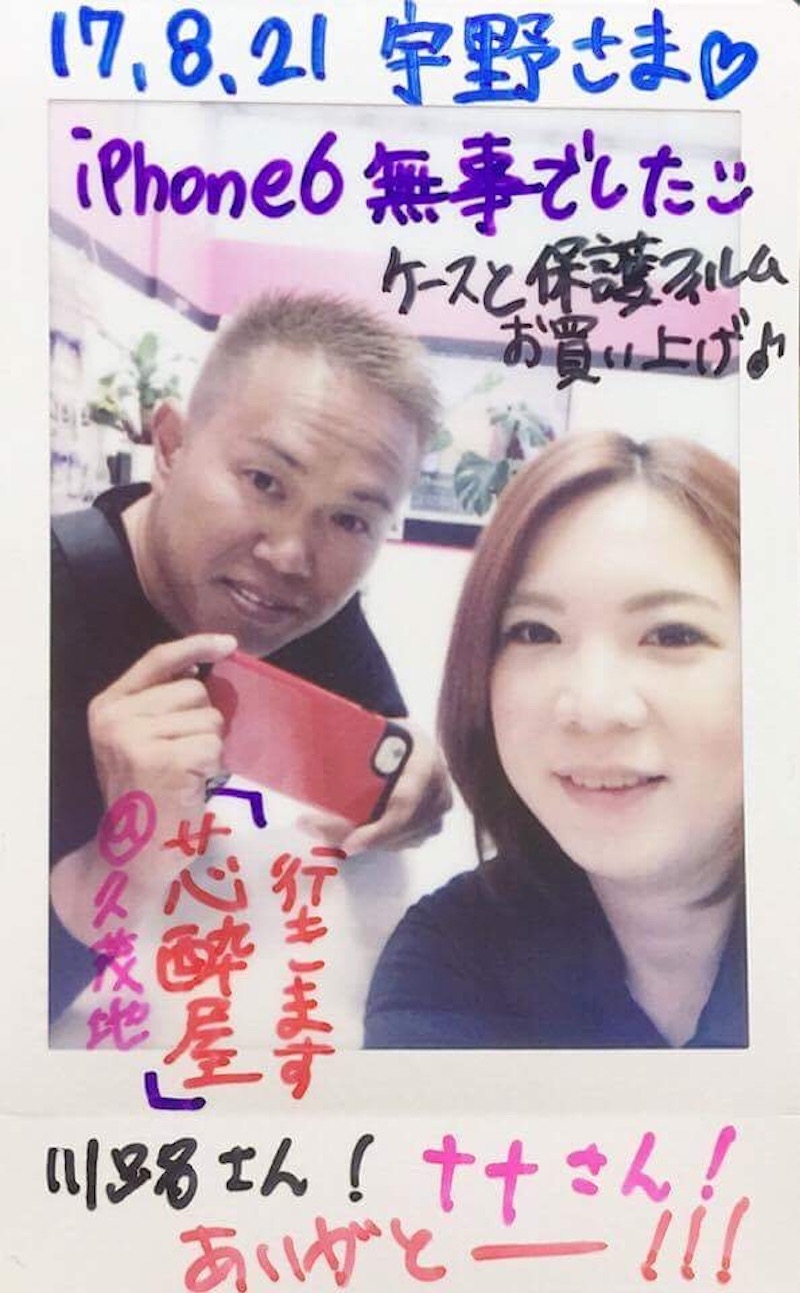 17.8.21 宇野さま♡
iPhone6 無事でした
ケースと保護フィルム
お買い上げ♪
行きます
「芯酔屋」
@久茂地
川路さん! ナナさん!
ありがとー!!!